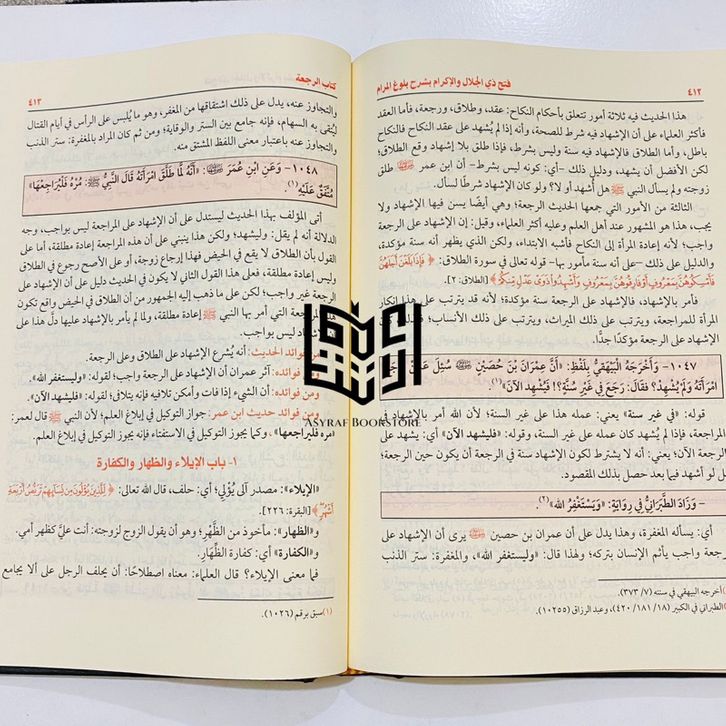 ٤١٢
فتح ذي الجلال والإكرام بشرح بلوغ المرام
هذا الحديث فيه ثلاثة أمور تتعلق بأحكام النكاح: عقد، وطلاق، ورجعة، فأما العقد
فأكثر العلماء على أن الإشهاد فيه شرط للصحة، وأنه إذا لم يُشهد على عقد النكاح فالنكاح
باطل، وأما الطلاق فالإشهاد فيه سنة وليس بشرط، فإذا طلق بلا إشهاد وقع الطلاق؛
لكن الأفضل أن يشهد، ودليل ذلك -أي: كونه ليس بشرط- أن ابن عمر طلق
زوجته ولم يسأل النبي ﷺ هل أشهد أو لا؟ ولو كان الإشهاد شرطًا لسأل.
الثالثة من الأمور التي جمعها الحديث الرجعة؛ وهي أيضًا يسن فيها الإشهاد ولا
يجب، هذا هو المشهور عند أهل العلم وعليه أكثر العلماء، وقيل: إن الإشهاد على الرجعة
واجب؛ لأنه إعادة المرأة إلى النكاح فأشبه الابتداء، ولكن الذي يظهر أنه سنة مؤكدة،
والدليل على ذلك -على أنه سنة مأمور بها- قوله تعالى في سورة الطلاق: ﴿فَإِذَا بَلَغْنَ أَجَلَهُنَّ
فَأَمْسِكُوهُنَّ بِمَعْرُوفٍ أَوْ فَارِقُوهُنَّ بِمَعْرُوفٍ وَأَشْهِدُوا ذَوَيْ عَدْلٍ مِنْكُمْ﴾ [الطلاق: ٢].
فأمر بالإشهاد، فالإشهاد على الرجعة سنة مؤكدة؛ لأنه قد يترتب على هذا إنكار
المرأة للمراجعة، ويترتب على ذلك الميراث، ويترتب على ذلك الأنساب؛
الإشهاد على الرجعة مؤكدًا جدًّا.
١٠٤٧- وَأَخْرَجَهُ الْبَيْهَقِيُّ بِلَفْظِ: «أَنَّ عِمْرَانَ بْنَ حُصَيْنٍ سُئِلَ عَمَّنْ
امْرَأَتَهُ وَلَمْ يُشْهِدْ؟ فَقَالَ: رَجَعَ فِي غَيْرِ سُنَّةٍ؟! فَيُشْهِدِ الآنَ»(١)
قوله: «في غير سنة» يعني: عمله هذا على غير السنة؛ لأن الله أمر بالإشهاد في
المراجعة، فإذا لم يُشهد كان عمله على غير السنة، وقوله: «فليشهد الآن» أي: يشهد على
الرجعة الآن؛ يعني: أنه لا يشترط لكون الإشهاد سنة في الرجعة أن يكون حين الرجعة؛
لو أشهد فيما بعد حصل بذلك المقصود.
- وَزَادَ الطَّبَرَانِيُّ فِي رِوَايَةٍ: «وَيَسْتَغْفِرُ الله»(٢).
أي: يسأله المغفرة، وهذا يدل على أن عمران بن حصين يرى أن الإشهاد على
رجعة واجب يأثم الإنسان بتركه؛ ولهذا قال: «وليستغفر الله»، والمغفرة: ستر الذنب
أخرجه البيهقي في سننه (٧/ ٣٧٣).
الطبراني في الكبير (١٨/ ١٨١/ ٤٢٠)، وعبد الرزاق (١٠٢٥٥)
كتاب الرجعة
٤١٣
والتجاوز عنه، يدل على ذلك اشتقاقها من المغفر، وهو ما يُلبس على الرأس في أيام القتال
ليُتقى به السهام، فإنه جامع بين الستر والوقاية؛ ومن ثم كان المراد بالمغفرة: ستر الذنب
والتجاوز عنه باعتبار معنى اللفظ المشتق منه.
١٠٤٨- وَعَنِ ابْنِ عُمَرَ: «أَنَّهُ لَمَّا طَلَّقَ امْرَأَتَهُ قَالَ النَّبِيُّ ﷺ: مُرْهُ فَلْيُرَاجِعْهَا»
مُتَّفَقٌ عَلَيْهِ(١).
أتى المؤلف بهذا الحديث ليستدل على أن الإشهاد على المراجعة ليس بواجب، وجه
الدلالة أنه لم يقل: وليشهد؛ ولكن هذا ينبني على أن هذه المراجعة إعادة مطلقة، أما على
القول بأن الطلاق لا يقع في الحيض فهذا إرجاع زوجة، أو على الأصح رجوع في الطلاق
وليس إعادة مطلقة، فعلى هذا القول الثاني لا يكون في الحديث دليل على أن الإشهاد على
الرجعة غير واجب؛ لكن على ما ذهب إليه الجمهور من أن الطلاق في الحيض واقع تكون
المراجعة التي أمر بها النبي ﷺ إعادة مطلقة، ولما لم يأمر بالإشهاد عليها دلَّ هذا على
الإشهاد ليس بواجب.
من فوائد الحديث: أنه يُشرع الإشهاد على الطلاق وعلى الرجعة.
ومن فوائده: أثر عمران أن الإشهاد على الرجعة واجب؛ لقوله: «وليستغفر الله».
ومن فوائده: أن الشيء إذا فات وأمكن تلافيه فإنه يتلافى؛ لقوله: «فليشهد الآن».
ومن فوائد حديث ابن عمر: جواز التوكيل في إبلاغ العلم؛ لأن النبي ﷺ قال لعمر:
«مره فليراجعها»، وكما يجوز التوكيل في الاستفتاء فإنه يجوز التوكيل في إبلاغ العلم.
١- باب الإيلاء والظهار والكفارة
«الإيلاء»: مصدر آلى يُؤْلِي؛ أي: حلف، قال الله تعالى: ﴿لِلَّذِينَ يُؤْلُونَ مِنْ نِسَائِهِمْ تَرَبُّصُ أَرْبَعَةِ
أَشْهُرٍ﴾ [البقرة: ٢٢٦].
و«الظهار»: مأخوذ من الظَّهْر؛ وهو أن يقول الزوج لزوجته: أنت عليَّ كظهر أمي.
و«الكفارة» أي: كفارة الظِّهَارِ.
فما معنى الإيلاء؟ قال العلماء: معناه اصطلاحًا: أن يحلف الرجل على ألا يجامع
(١) سبق برقم (١٠٢٦).
ASYRAF BOOKSTORE